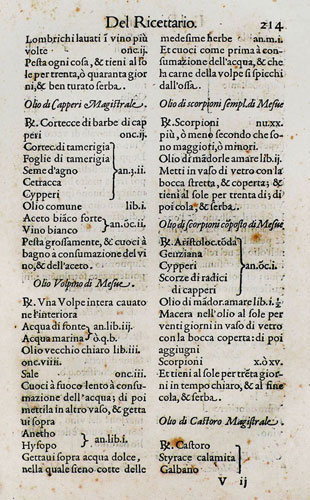 Del Ricettario. 214
Lombrichi lauati ĩ vino più
volte onc.ij.
Pesta ogni cosa, & tieni al so
le per trenta, ò quaranta gior
ni, & ben turato serba.
Olio di Capperi Magistrale.
℞. Cortecce di barbe di cap
peri onc.ij.
Cortec. di tamerigia
Foglie di tamerigia
Seme d'agno an.ʒ.ii.
Cetracca
Cypperi
Olio comune lib.i.
Aceto biãco forte
Vino bianco an.õc.ii.
Pesta grossamente, & cuoci à
bagno a consumatione del vi
no, & dell'aceto.
Olio Volpino di Mesue.
℞. Vna Volpe intera cauato
ne l'interiora
Acqua di fonte an.lib.iij.
Acqua marina ò q.b.
Olio vecchio chiaro lib.iii.
onc.viii.
Sale onc.iii.
Cuoci à fuoco lento à consu-
matione dell'acqua; di poi
mettila in altro vaso, & getta
ui sopra
Anetho
Hysopo an.lib.i.
Gettaui sopra acqua dolce,
nella quale sieno cotte delle
medesime herbe an.m.i.
Et cuoci come prima à con-
sumazione dell'acqua, & che
la carne della volpe si spicchi
dall'ossa.
Olio di scorpioni sempl. di Mesue
℞. Scorpioni nu.xx.
più, ò meno secondo che so-
no maggiori, ò minori.
Olio di mãdorle amare lib.ij.
Metti in vaso di vetro con la
bocca stretta, & coperta; &
tieni al sole per trenta dì; di
poi cola, & serba.
Olio di scorpioni cõposto di Mesue
℞. Aristoloc. tõda
Genziana
Cypperi an.õc.i.
Scorze di radici
di capperi
Olio di mãdor. amare lib.i.½
Macera nell'olio al sole per
venti giorni in vaso di vetro
con la bocca coperta; di poi
aggiugni
Scorpioni x.ò xv.
Et tieni al sole per trẽta giorni
in tempo chiaro, & al fine
cola, & serba.
Olio di Castoro Magistrale.
℞. Castoro
Styrace calamita
Galbano
V ij